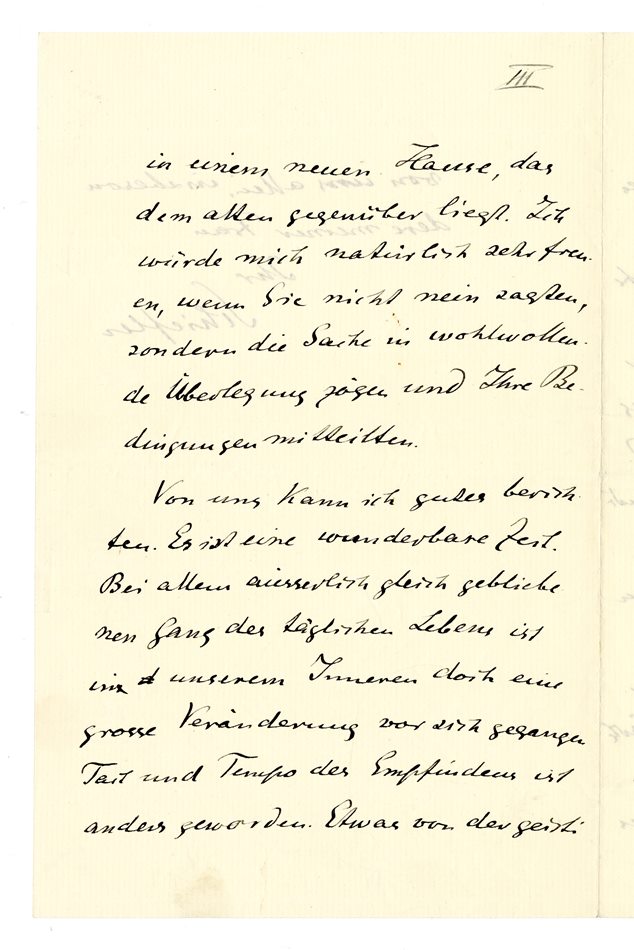 III
in einem neuen Hause, das
dem alten gegenüber liegt. Ich
würde mich natürlich sehr freu-
en, wenn Sie nicht nein sagten,
sondern die Sache in wohlwollen-
de Überlegung zögen und Ihre Be-
dingungen mitteilten.
Von uns kann ich gutes berich-
ten. Es ist eine wunderbare Zeit.
Bei allem äusserlich gleich gebliebe
nen Gang des täglichen Lebens ist
in unserem Inneren doch eine
grosse Veränderung vor sich gegangen
Takt und Tempo des Empfindens ist
anders geworden. Etwas von der geisti
von uns allen, 
den meiner Frau
Ihr